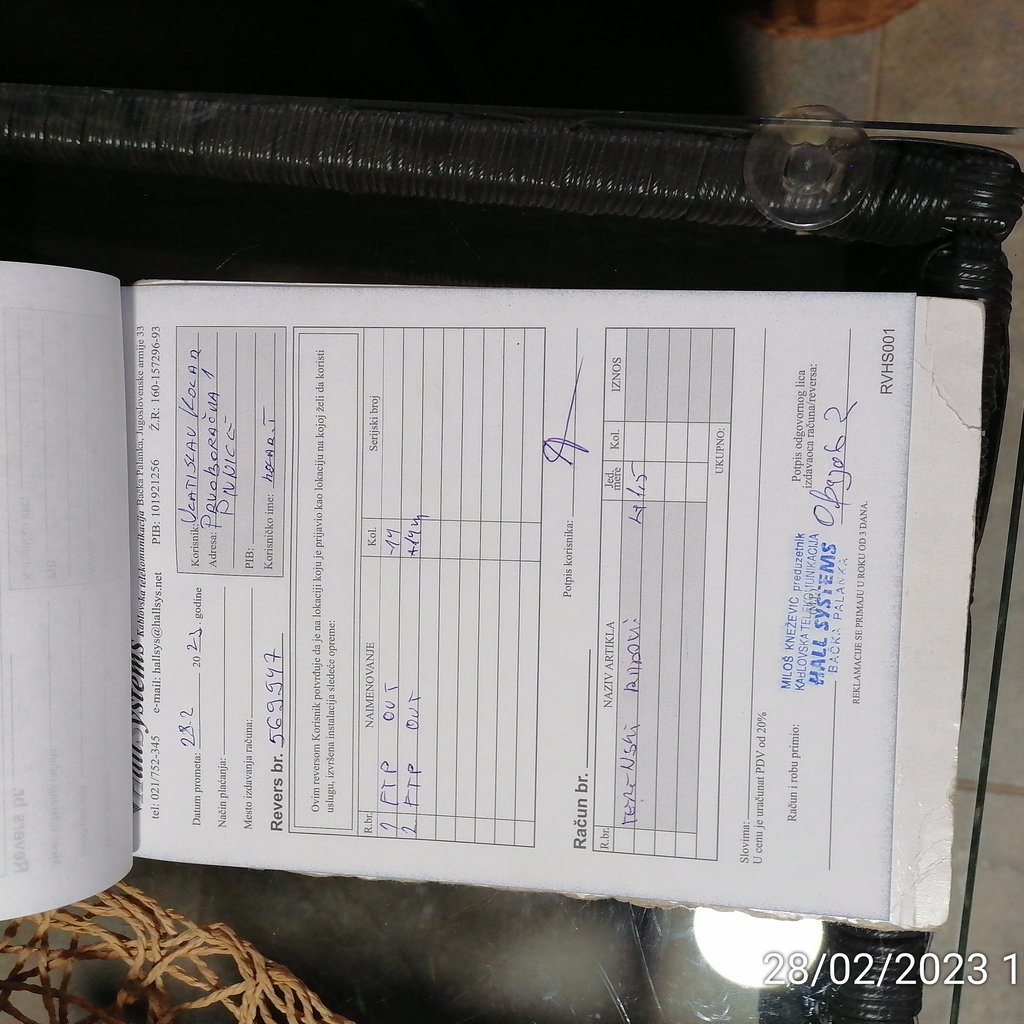 Hall Systems Kablovska telekomunikacija Bačka Palanka, Jugoslovenske armije 33
tel: 021/752-345 e-mail: hallsys@hallsys.net PIB: 101921256 Ž.R: 160-157296-93
Datum prometa: 28.2 2023. godine
Način plaćanja:
Mesto izdavanja računa:
Revers br. 569947
Korisnik: VLATISLAV KOLAR
Adresa: PRVOBORAČKA 1
PIVNICE
PIB:
Korisničko ime:
Ovim reversom Korisnik potvrđuje da je na lokaciji koju je prijavio kao lokaciju na kojoj želi da koristi
uslugu, izvršena instalacija sledeće opreme:
R.br. NAIMENOVANJE Kol. Serijski broj
1 FTP OUT -14
2 FTP OUT +14m
Potpis korisnika:
Račun br.
R.br. NAZIV ARTIKLA Jed. mere Kol. IZNOS
UKUPNO:
Slovima:
U cenu je uračunat PDV od 20%
Račun i robu primio:
Potpis odgovornog lica
izdavaoca računa/reversa:
MILOŠ KNEŽEVIĆ, preduzetnik
KABLOVSKA TELEKOMUNIKACIJA
HALL SYSTEMS
BAČKA PALANKA
REKLAMACIJE SE PRIMAJU U ROKU OD 3 DANA
RVHS001
28/02/2023 1